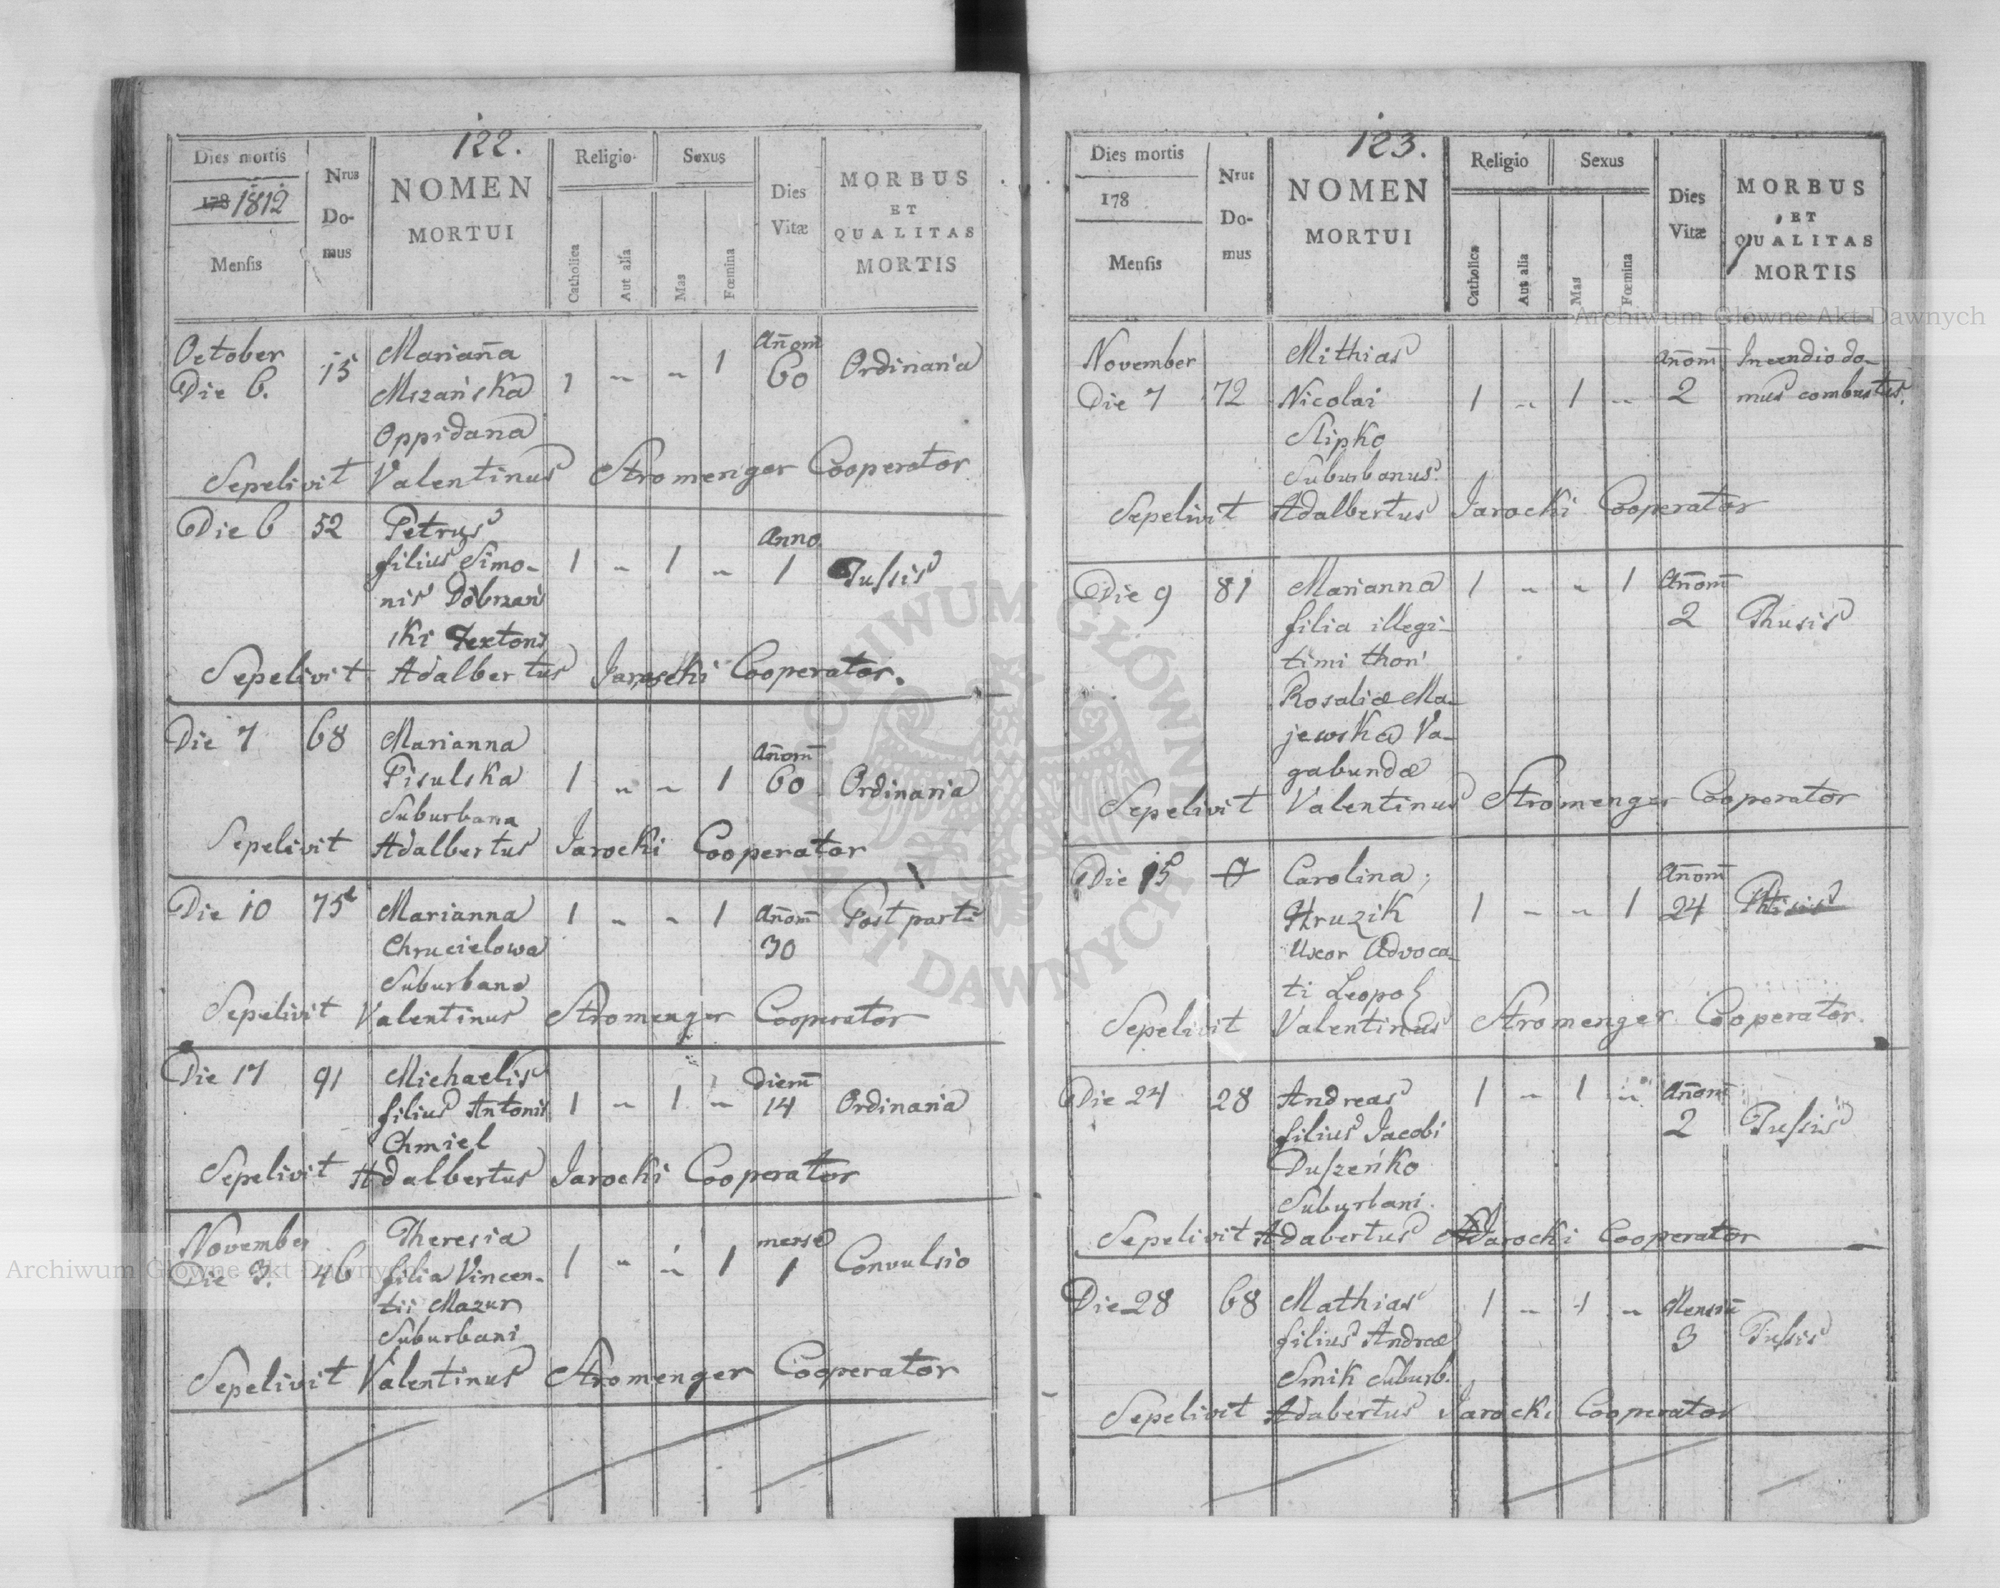 122.
Dies mortis
178 1812
Mensis
Nrus Do-mus
NOMEN
MORTUI
Religio
Catholica
Aut alia
Sexus
Mas
Fœmina
Dies
Vitæ
MORBUS
ET
QUALITAS
MORTIS
October
Die 6. 15 Mariañа 1 " " 1 Añom̄ 60 Ordinaria
Mszańska
Oppidana
Sepelivit Valentinus Stromenger Cooperator
Die 6 52 Petrus
filius Simo- 1 " 1 " Anno. 1 Tussis
nis Dobrzań
ski Textoris
Sepelivit Adalbertus Jarocki Cooperator.
Die 7 68 Marianna
Pisulska 1 " " 1 Añom̄ 60 Ordinaria
Suburbana
Sepelivit Adalbertus Jarocki Cooperator
Die 10 75 Marianna 1 " " 1 Añom̄ 30 Post parti
Chrucielowa
Suburbana
Sepelivit Valentinus Stromenger Cooperator
Die 17 91 Michaelis
filius Antonii 1 " 1 " Dierū 14 Ordinaria
Chmiel
Sepelivit Adalbertus Jarocki Cooperator
November
Die 3. 46 Theresia 1 " " 1 mense 1 Convulsio
filia Vincen-
tii Mazur
Suburbani
Sepelivit Valentinus Stromenger Cooperator
123.
Dies mortis
178
Mensis
Nrus Do-mus
NOMEN
MORTUI
Religio
Catholica
Aut alia
Sexus
Mas
Fœmina
Dies
Vitæ
MORBUS
ET
QUALITAS
MORTIS
November Mithias Añom̄ Incendio do-
Die 7 72 Nicolai 1 " 1 " 2 mus combustus.
Slipko
Suburbanus.
Sepelivit Adalbertus Jarocki Cooperator
Die 9 81 Marianna 1 " " 1 Añom̄
filia illegi- 2 Thusis
timi thori
Rosaliæ Ma-
jewska Va-
gabundæ
Sepelivit Valentinus Stromenger Cooperator
Die 15 0 Carolina Añom̄
Hruzik 1 " " 1 24 Phtisis
Uxor Advoca-
ti Leopol
Sepelivit Valentinus Stromenger Cooperator.
Die 24 28 Andreas 1 " 1 " Añom̄
filius Jacobi 2 Tussis
Duszeńko
Suburbani.
Sepelivit Adabertus Jarocki Cooperator
Die 28 68 Mathias 1 " 1 " Mensiū
filius Andreæ 3 Tussis
Smik Suburb.
Sepelivit Adabertus Jarocki Cooperator
Archiwum Główne Akt Dawnych
Archiwum Główne Akt Dawnych
ARCHIWUM GŁÓWNE AKT DAWNYCH